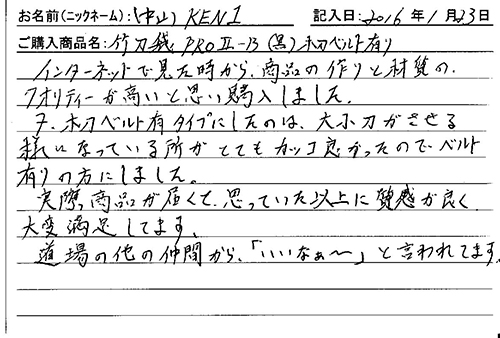 お名前(ニックネーム):(中山) KEN1 記入日:2016年1月23日
ご購入商品名:竹刀袋PROⅡ-B(黒)木刀ベルト有り
インターネットで見た時から、商品の作りと材質の、
クオリティーが高いと思い購入しました。
又、木刀ベルト有タイプにしたのは、大小刀がさせる
様になっている所がとてもカッコ良かったのでベルト
有りの方にしました。
実際、商品が届くと、思っていた以上に質感が良く
大変満足してます。
道場の他の仲間から、「いいなぁ〜」と言われてます。